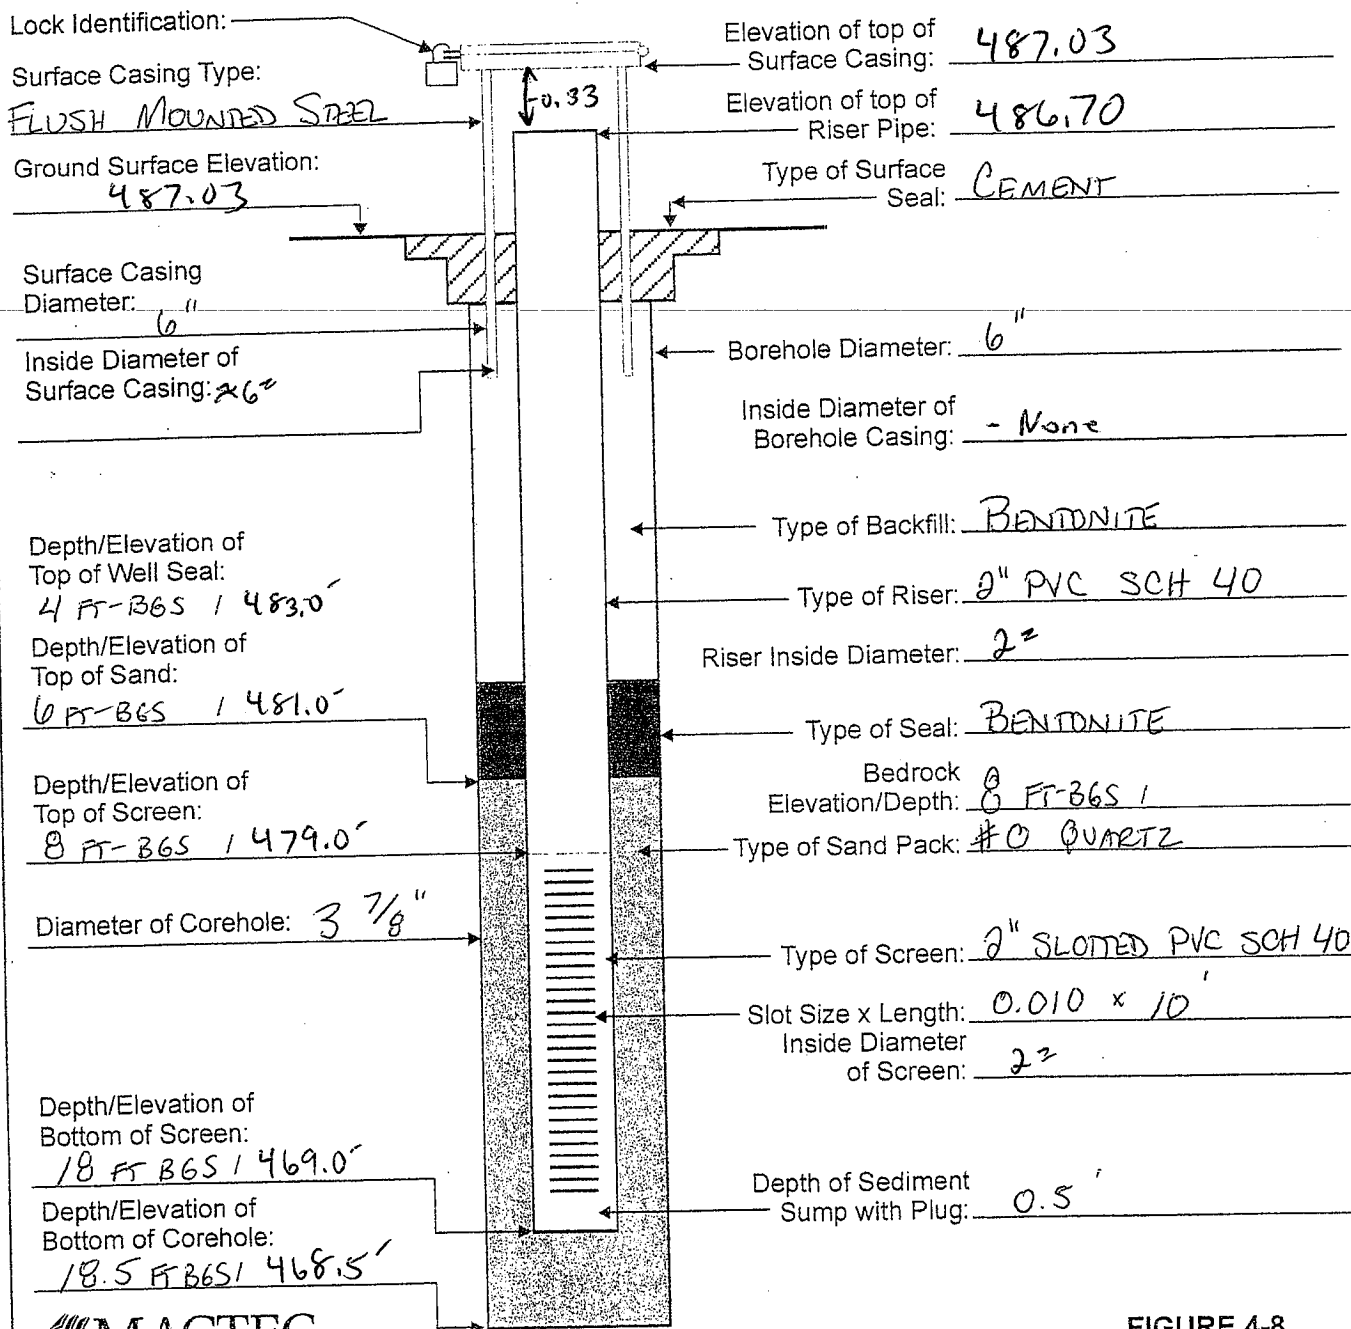 Lock Identification:
Surface Casing Type:
FLUSH MOUNTED STEEL
Ground Surface Elevation:
487.03
Surface Casing
Diameter: 6"
Inside Diameter of
Surface Casing: ≈6"
Depth/Elevation of
Top of Well Seal:
4 FT-BGS / 483.0'
Depth/Elevation of
Top of Sand:
6 FT-BGS / 481.0'
Depth/Elevation of
Top of Screen:
8 FT-BGS / 479.0'
Diameter of Corehole: 3 7/8"
Depth/Elevation of
Bottom of Screen:
18 FT BGS / 469.0'
Depth/Elevation of
Bottom of Corehole:
18.5 FT BGS / 468.5'
MACTEC
-0.33
Elevation of top of
Surface Casing: 487.03
Elevation of top of
Riser Pipe: 486.70
Type of Surface
Seal: CEMENT
Borehole Diameter: 6"
Inside Diameter of
Borehole Casing: - None
Type of Backfill: BENTONITE
Type of Riser: 2" PVC SCH 40
Riser Inside Diameter: 2"
Type of Seal: BENTONITE
Bedrock
Elevation/Depth: 8 FT-BGS /
Type of Sand Pack: #0 QUARTZ
Type of Screen: 2" SLOTTED PVC SCH 40
Slot Size x Length: 0.010 x 10'
Inside Diameter
of Screen: 2"
Depth of Sediment
Sump with Plug: 0.5'
FIGURE 4-8